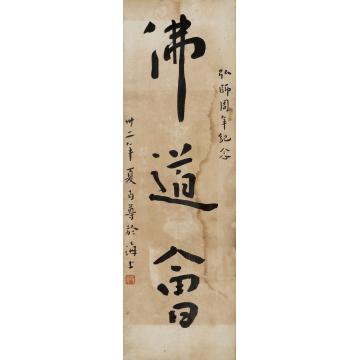 弘師周年紀念
佛道會
卅二年夏丏尊於海上